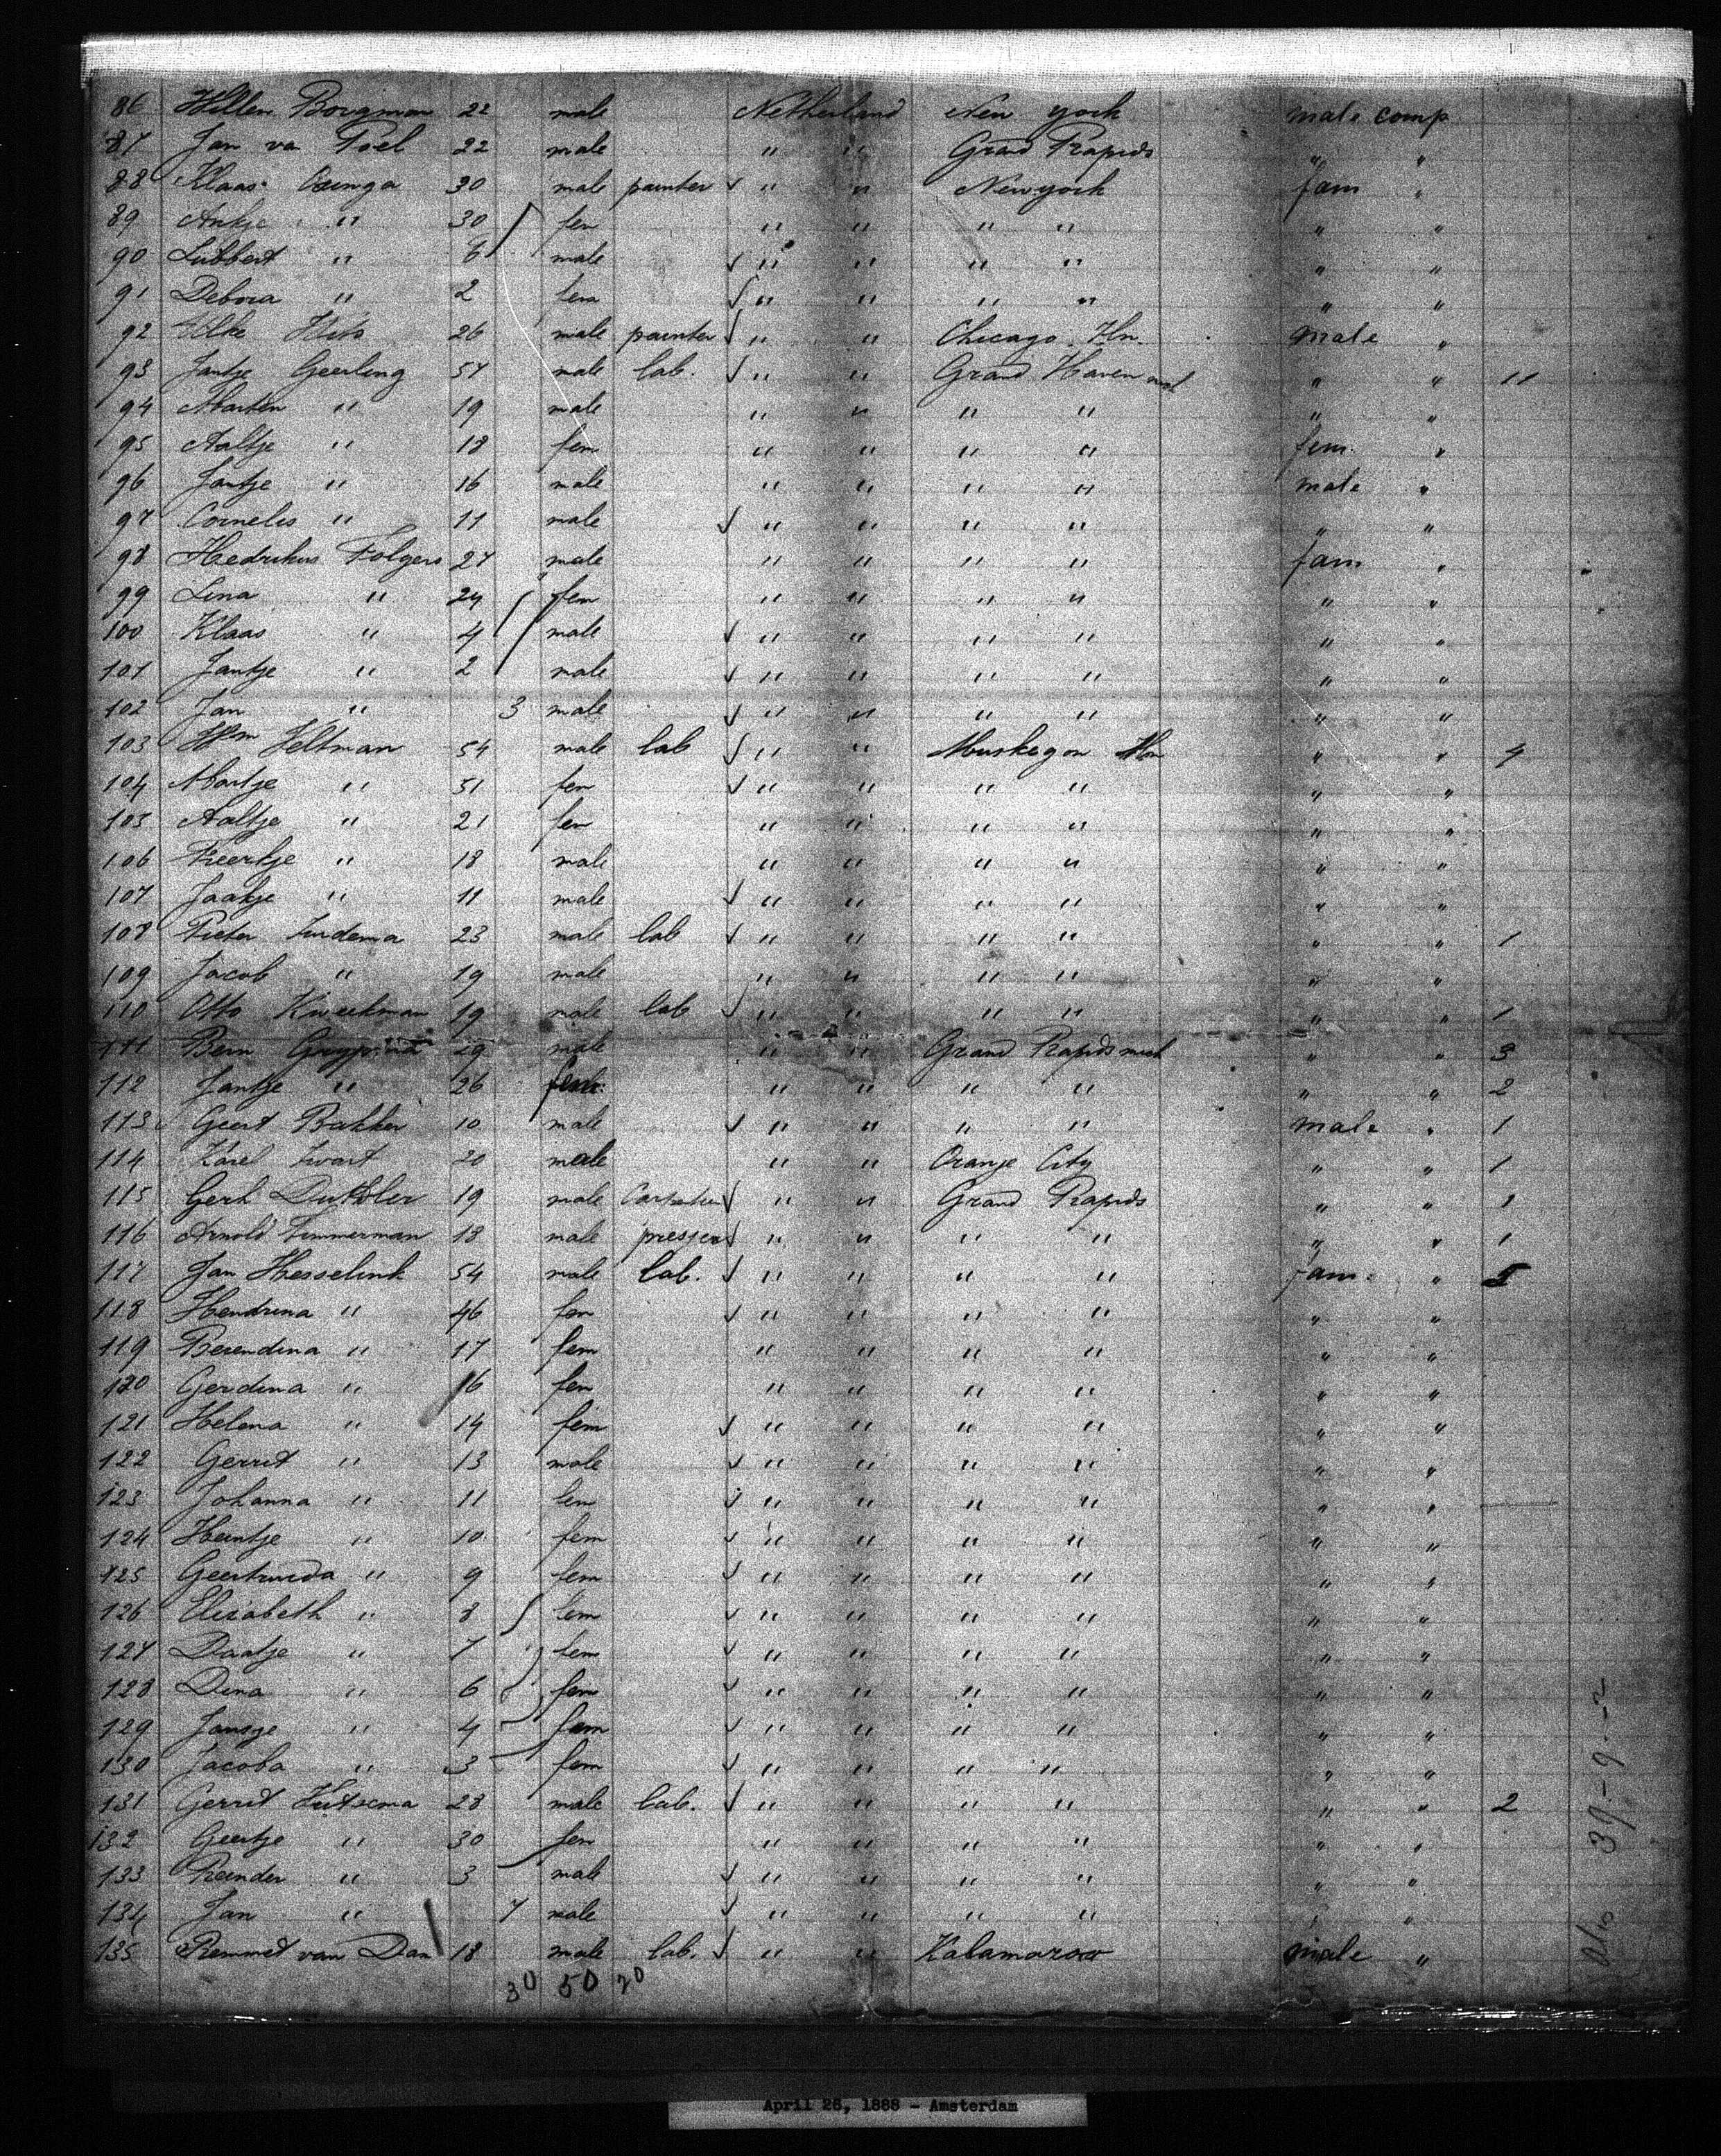 86 Hillen Borgman 22 male Netherland New york male comp
87 Jan va Poel 22 male " " Grand Rapids " "
88 Klaas 30 male painter √ " " Newyork fam "
89 Ankje " 30 fem " " " " " "
90 Lubbert " 6 male √ " " " " " "
91 Debora " 2 fem √ " " " " " "
92 26 male painter √ " " Chicago male "
93 Jantje Geerling 57 male lab. √ " " Grand Haven " " 11
94 Marten " 19 male " " " " " "
95 Aaltje " 18 fem " " " " fem. "
96 Jantje " 16 male " " " " male "
97 Cornelis " 11 male √ " " " " " "
98 Hedrikus Folgers 27 male " " " " fam "
99 Lina " 24 fem " " " " " "
100 Klaas " 4 male √ " " " " " "
101 Jantje " 2 male √ " " " " " "
102 Jan " 3 male √ " " " " " "
103 Wm Veltman 54 male lab √ " " Muskegon " " 4
104 Martje " 51 fem √ " " " " " "
105 Aaltje " 21 fem " " " " " "
106 " 18 male " " " " " "
107 Jaakje " 11 male √ " " " " " "
108 Pieter Zuidema 23 male lab √ " " " " " " 1
109 Jacob " 19 male " " " " " "
110 Otto Kweekman 19 male lab √ " " " " " " 1
111 Bern 29 male " " Grand Rapids mich " " 3
112 Jantje " 26 fem. " " " " " " 2
113 Geert Bakker 10 male √ " " " " male " 1
114 Karel Zwart 20 male " " Oranje City " " 1
115 Gerh 19 male √ " " Grand Rapids " " 1
116 Arnold Timmerman 18 male √ " " " " " " 1
117 Jan Hesselink 54 male lab. √ " " " " fam. " 5
118 Hendrina " 46 fem √ " " " " " "
119 Berendina " 17 fem " " " " " "
120 Gerdina " 16 fem " " " " " "
121 Helena " 14 fem √ " " " " " "
122 Gerrit " 13 male √ " " " " " "
123 Johanna " 11 fem √ " " " " " "
124 Heintje " 10 fem √ " " " " " "
125 Geertruida " 9 fem √ " " " " " "
126 Elizabeth " 8 fem √ " " " " " "
127 Daatje " 7 fem √ " " " " " "
128 Dina " 6 fem √ " " " " " "
129 Jansje " 4 fem √ " " " " " "
130 Jacoba " 3 fem √ " " " " " "
131 Gerrit 28 male lab. √ " " " " " " 2
132 Geertje " 30 fem " " " " " "
133 Reinder " 3 male √ " " " " " "
134 Jan " 7 male √ " " " " " "
135 Remmet van Dan 18 male lab. √ " " Kalamazoo male "
30 50 20
39-9-2
April 26, 1888 - Amsterdam